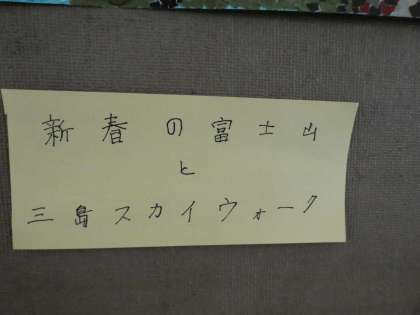 新春の富士山
と
三島スカイウォーク